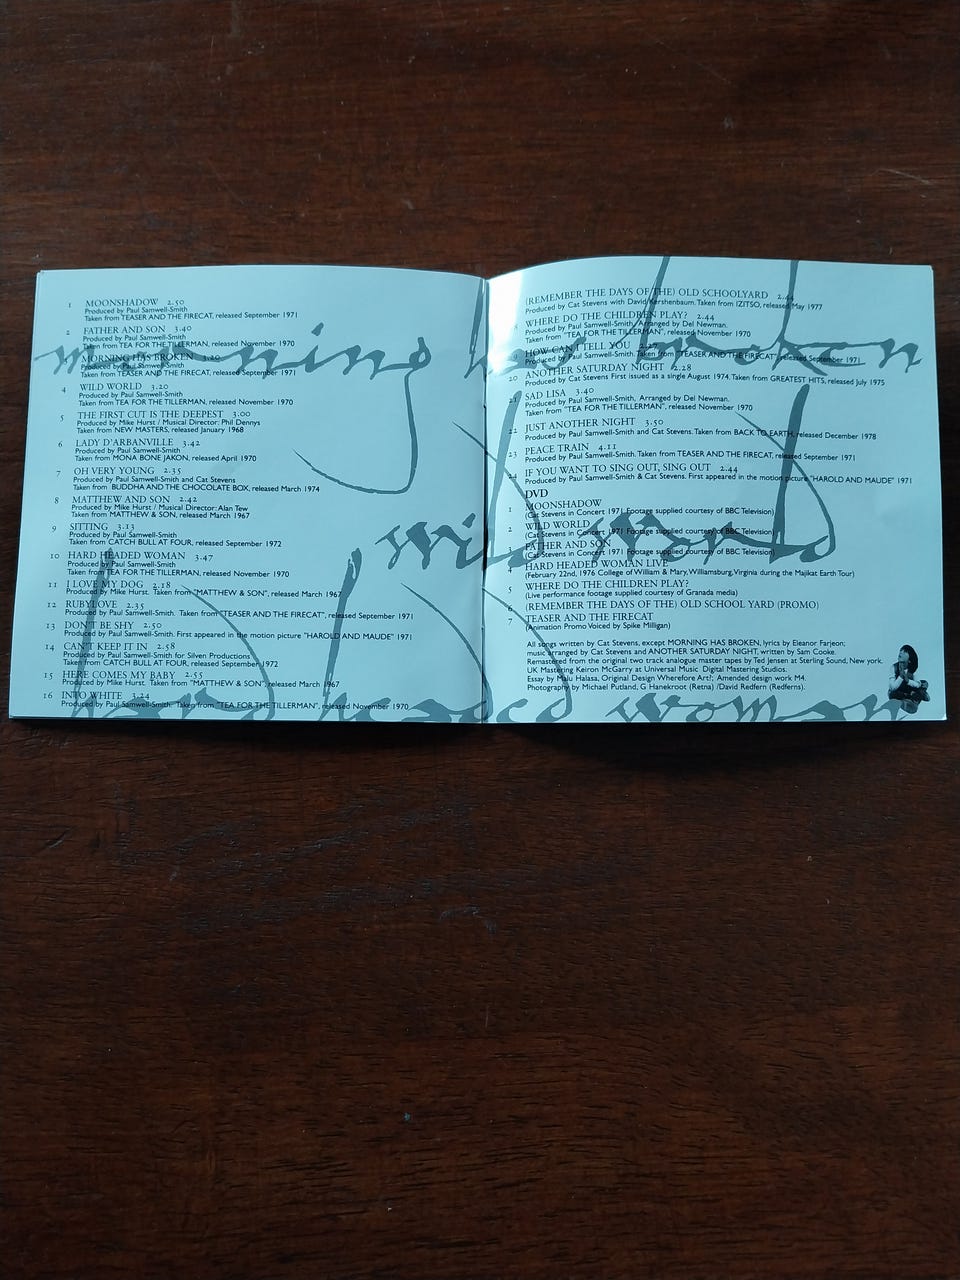 1 MOONSHADOW 2.50
Produced by Paul Samwell-Smith
Taken from TEASER AND THE FIRECAT, released September 1971
2 FATHER AND SON 3.40
Produced by Paul Samwell-Smith
Taken from TEA FOR THE TILLERMAN, released November 1970
MORNING HAS BROKEN 3.20
Produced by Paul Samwell-Smith
Taken from TEASER AND THE FIRECAT, released September 1971
4 WILD WORLD 3.20
Produced by Paul Samwell-Smith
Taken from TEA FOR THE TILLERMAN, released November 1970
5 THE FIRST CUT IS THE DEEPEST 3.00
Produced by Mike Hurst / Musical Director: Phil Dennys
Taken from NEW MASTERS, released January 1968
6 LADY D'ARBANVILLE 3.42
Produced by Paul Samwell-Smith
Taken from MONA BONE JAKON, released April 1970
7 OH VERY YOUNG 2.35
Produced by Paul Samwell-Smith and Cat Stevens
Taken from BUDDHA AND THE CHOCOLATE BOX, released March 1974
8 MATTHEW AND SON 2.42
Produced by Mike Hurst / Musical Director: Alan Tew
Taken from MATTHEW & SON, released March 1967
9 SITTING 3.13
Produced by Paul Samwell-Smith
Taken from CATCH BULL AT FOUR, released September 1972
10 HARD HEADED WOMAN 3.47
Produced by Paul Samwell-Smith
Taken from TEA FOR THE TILLERMAN, released November 1970
11 I LOVE MY DOG 2.18
Produced by Mike Hurst. Taken from "MATTHEW & SON", released March 1967
12 RUBYLOVE 2.35
Produced by Paul Samwell-Smith. Taken from "TEASER AND THE FIRECAT", released September 1971
13 DON'T BE SHY 2.50
Produced by Paul Samwell-Smith. First appeared in the motion picture "HAROLD AND MAUDE" 1971
14 CAN'T KEEP IT IN 2.58
Produced by Paul Samwell-Smith for Silven Productions
Taken from CATCH BULL AT FOUR, released September 1972
15 HERE COMES MY BABY 2.55
Produced by Mike Hurst. Taken from "MATTHEW & SON", released March 1967
16 INTO WHITE 3.24
Produced by Paul Samwell-Smith. Taken from "TEA FOR THE TILLERMAN", released November 1970
(REMEMBER THE DAYS OF THE) OLD SCHOOLYARD 2.44
Produced by Cat Stevens with David Kershenbaum. Taken from IZITSO, released May 1977
WHERE DO THE CHILDREN PLAY? 2.44
Produced by Paul Samwell-Smith, Arranged by Del Newman.
Taken from "TEA FOR THE TILLERMAN", released November 1970
HOW CAN I TELL YOU 2.27
Produced by Paul Samwell-Smith. Taken from "TEASER AND THE FIRECAT", released September 1971.
20 ANOTHER SATURDAY NIGHT 2.28
Produced by Cat Stevens First issued as a single August 1974. Taken from GREATEST HITS, released July 1975
21 SAD LISA 3.40
Produced by Paul Samwell-Smith, Arranged by Del Newman.
Taken from "TEA FOR THE TILLERMAN", released November 1970
22 JUST ANOTHER NIGHT 3.50
Produced by Paul Samwell-Smith and Cat Stevens. Taken from BACK TO EARTH, released December 1978
23 PEACE TRAIN 4.11
Produced by Paul Samwell-Smith. Taken from TEASER AND THE FIRECAT, released September 1971
24 IF YOU WANT TO SING OUT, SING OUT 2.44
Produced by Paul Samwell-Smith & Cat Stevens. First appeared in the motion picture "HAROLD AND MAUDE" 1971
DVD
1 MOONSHADOW
(Cat Stevens in Concert 1971 Footage supplied courtesy of BBC Television)
2 WILD WORLD
(Cat Stevens in Concert 1971 Footage supplied courtesy of BBC Television)
FATHER AND SON
(Cat Stevens in Concert 1971 Footage supplied courtesy of BBC Television)
4 HARD HEADED WOMAN LIVE
(February 22nd, 1976 College of William & Mary, Williamsburg, Virginia during the Majikat Earth Tour)
5 WHERE DO THE CHILDREN PLAY?
(Live performance footage supplied courtesy of Granada media)
6 (REMEMBER THE DAYS OF THE) OLD SCHOOL YARD (PROMO)
7 TEASER AND THE FIRECAT
(Animation Promo Voiced by Spike Milligan)
All songs written by Cat Stevens, except MORNING HAS BROKEN, lyrics by Eleanor Farjeon;
music arranged by Cat Stevens and ANOTHER SATURDAY NIGHT, written by Sam Cooke.
Remastered from the original two track analogue master tapes by Ted Jensen at Sterling Sound, New york.
UK Mastering Keiron McGarry at Universal Music Digital Mastering Studios.
Essay by Malu Halasa, Original Design Wherefore Art?; Amended design work M4.
Photography by Michael Putland, G Hanekroot (Retna) /David Redfern (Redferns).
morning has broken
wild world
hard headed woman